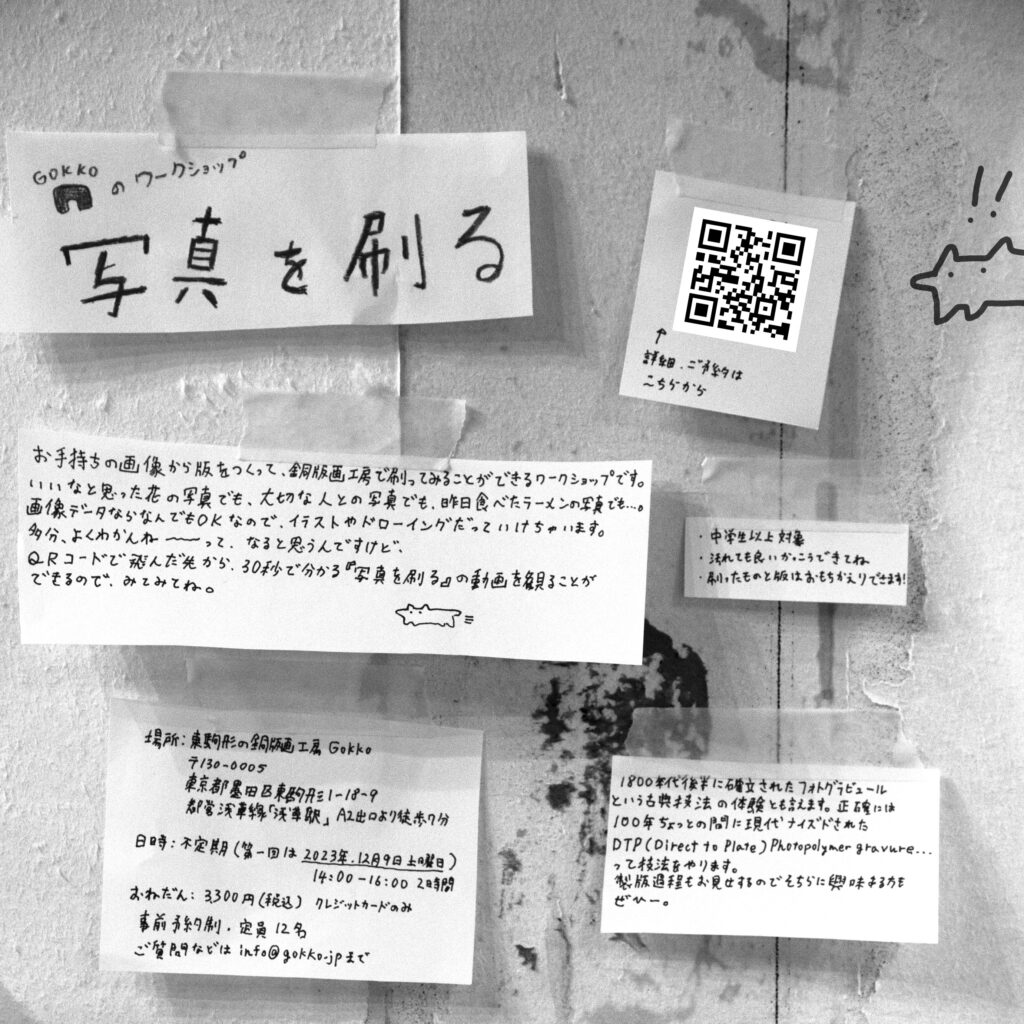 GOKKO
のワークショップ
写真を刷る
!!
↑
詳細・ご予約は
こちらから
お手持ちの画像から版をつくって、銅版画工房で刷ってみることができるワークショップです。
いいなと思った花の写真でも、大切な人との写真でも、昨日食べたラーメンの写真でも…。
画像データならなんでもOKなので、イラストやドローイングだっていけちゃいます。
多分、よくわかんね〜〜って、なると思うんですけど、
QRコードで飛んだ先から、30秒で分かる『写真を刷る』の動画を観ることが
できるので、みてみてね。
・中学生以上対象
・汚れても良いかっこうできてね
・刷ったものと版はおもちかえりできます!
場所：東駒形の銅版画工房 Gokko
〒130-0005
東京都墨田区東駒形1-18-9
都営浅草線「浅草駅」A2出口より徒歩7分
日時：不定期（第一回は 2023年.12月9日土曜日）
14:00-16:00 2時間
おねだん：3,300円(税込) クレジットカードのみ
事前予約制・定員12名
ご質問などは info@gokko.jpまで
1800年代後半に確立されたフォトグラビュール
という古典技法の体験とも言えます。正確には
100年ちょっとの間に現代ナイズドされた
DTP(Direct to Plate) Photopolymer gravure...
って技法をやります。
製版過程もお見せするのでそちらに興味ある方も
ぜひー。